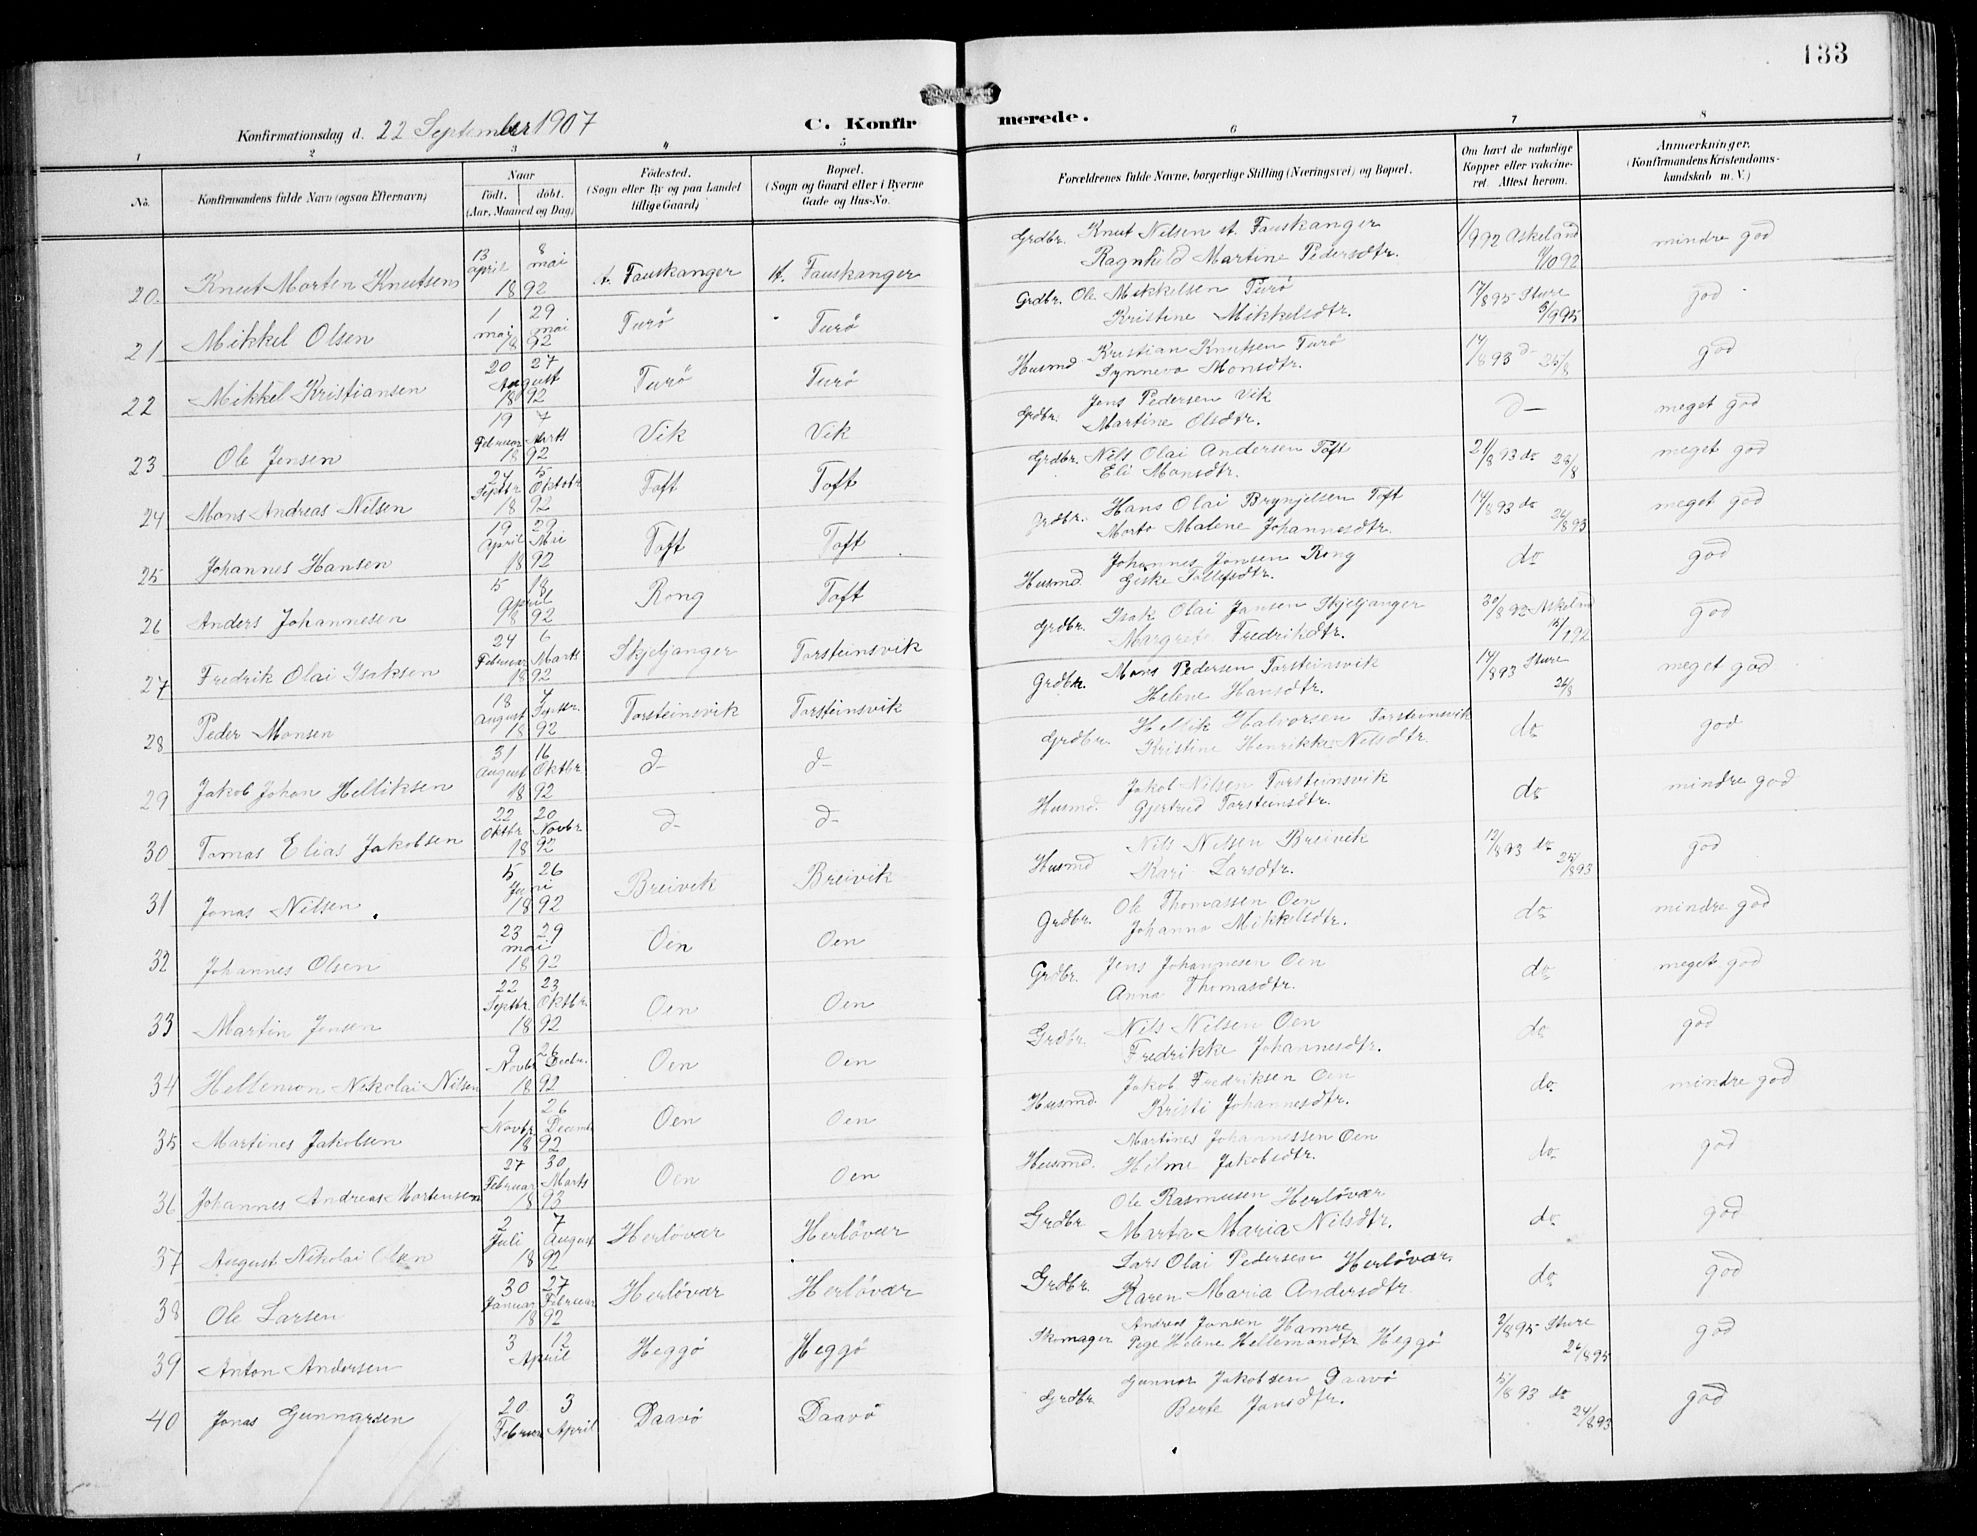 133
Konfirmationsdag d. 22 September 1907
C. Konfirmerede.
1 2 3 4 5 6 7 8
No. Konfirmandens fulde Navn (ogsaa Efternavn) Naar født. døbt. (Aar, Maaned og Dag) Fødested. (Sogn eller By og paa Landet tillige Gaard) Bopæl. (Sogn og Gaard eller i Byerne Gade og Hus-No. Forældrenes fulde Navne, borgerlige Stilling (Næringsvei) og Bopæl. Om havt de naturlige Kopper eller vakcineret. Attest herom. Anmærkninger. (Konfirmandens Kristendomskundskab m. V.)
20 Knut Morten Knutsen 13 april 8 mai 1892 st. Fauskanger st. Fauskanger Grdbr. Knut Nilsen st. Fauskanger
Ragnhild Martine Pedersdtr. 1/9 92 Askeland 9/10 92 mindre god
21 Mikkel Olsen 1 mai 29 mai 1892 Turö Turö Grdbr. Ole Mikkelsen Turö
Kristine Mikkelsdtr. 17/8 95 Sture 6/9 95 god
22 Mikkel Kristiansen 20 27 August 1892 Turö Turö Husmd Kristian Knutsen Turö
Synneva Monsdtr. 14/8 93 d- 25/8 god
23 Ole Jensen 19 Februar 7 Marts 1892 Vik Vik Grdbr. Jens Pedersen Vik
Martine Olsdtr. d- meget god
24 Mons Andreas Nilsen 24 Septbr 5 Oktobr 1892 Toft Toft Grdbr. Nils Olai Andersen Toft
Eli Monsdtr. 21/8 93 do 23/8 meget god
25 Johannes Hansen 19 April 29 Mai 1892 Toft Toft Grdbr. Hans Olai Brynjelsen Toft
Marta Malene Johannesdtr. 14/8 93 do 26/8 93 meget god
26 Anders Johannesen 5 18 April 1892 Rong Toft Husmd. Johannes Jonsen Rong
Giske Tollefsdtr. do god
27 Fredrik Olai Isaksen 24 Februar 6 Marts 1892 Skjeljanger Torsteinsvik Grdbr. Isak Olai Jansen Skjeljanger
Margrete Fredrikdtr. 30/8 92 Askeland god
28 Peder Monsen 18 August 4 Septbr. 1892 Torsteinsvik Torsteinsvik Grdbr. Mons Pedersen Torsteinsvik
Helene Hansdtr. 14/8 93 Sture 26/8 meget god
29 Jakob Johan Helliksen 31 August 16 Oktbr 1892 d- d- Grdbr. Hellik Halvorsen Torsteinsvik
Kristine Henrikke Nilsdtr. do god
30 Tomas Elias Jakobsen 22 Oktbr 20 Novbr 1892 d- d- Husmd. Jakob Nilsen Torsteinsvik
Gjertrud Torsteinsdtr. do mindre god
31 Jonas Nilsen 5 26 Juni 1892 Breivik Breivik Husmd Nils Nilsen Breivik
Kari Larsdtr. 12/8 93 do 25/8 93 god
32 Johannes Olsen 23 29 mai 1892 Oen Oen Grdbr. Ole Thomassen Oen
Johanna Mikkelsdtr. do mindre god
33 Martin Jensen 22 Septbr. 23 Oktbr. 1892 Oen Oen Grdbr. Jens Johannesen Oen
Anna Thomasdtr. do meget god
34 Hellemon Nikolai Nilsen 9 Novbr 26 Decbr. 1892 Oen Oen Grdbr. Nils Nilsen Oen
Fredrikke Johannesdtr. do god
35 Martines Jakobsen 1 Novbr 26 Decemb 1892 Oen Oen Husmd. Jakob Fredriksen Oen
Kristi Johannesdtr. do mindre god
36 Johannes Andreas Martensen 27 Februar 30 Marts 1893 Oen Oen Husmd. Martines Johannessen Oen
Jakobsdtr. do god
37 August Nikolai Olsen 2 Juli 7 August 1892 Herlövær Herlövær Grdbr Ole Rasmusen Herlövær
Marta Maria Nilsdtr. do god
38 Ole Larsen 30 Januar 27 Februar 1892 Herlövær Herlövær Grdbr. Lars Olai Pedersen Herlövær.
Karen Maria Andersdtr. do god
39 Anton Andersen 3 12 April Heggö Heggö Skomager Andreas Jonsen Hamre
Helene Hellemandtr Heggö 2/8 95 Sture 26/8 95 god
40 Jonas Gunnarsen 20 Februar 3 April Daavö Daavö Grdbr Gunnar Jakobsen Daavö
Berte Jonsdtr. 5/8 93 do 24/8 93 god